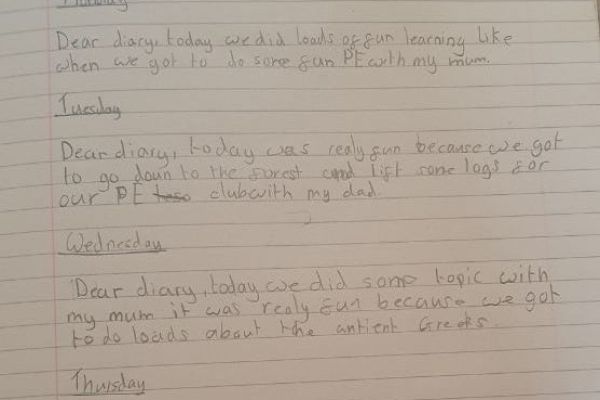 Dear diary, today we did loads of fun learning like
when we got to do some fun PE with my mum.
Tuesday
Dear diary, today was realy fun because we got
to go down to the forest and lift some logs for
our PE club with my dad.
Wednesday
Dear diary, today we did some topic with
my mum it was realy fun because we got
to do loads about the antient Greeks.
Thursday